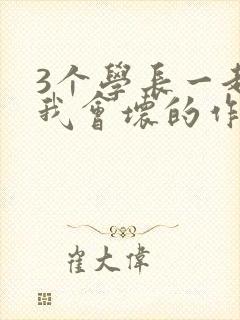 3个學長一起
我會壞的作
崔大偉